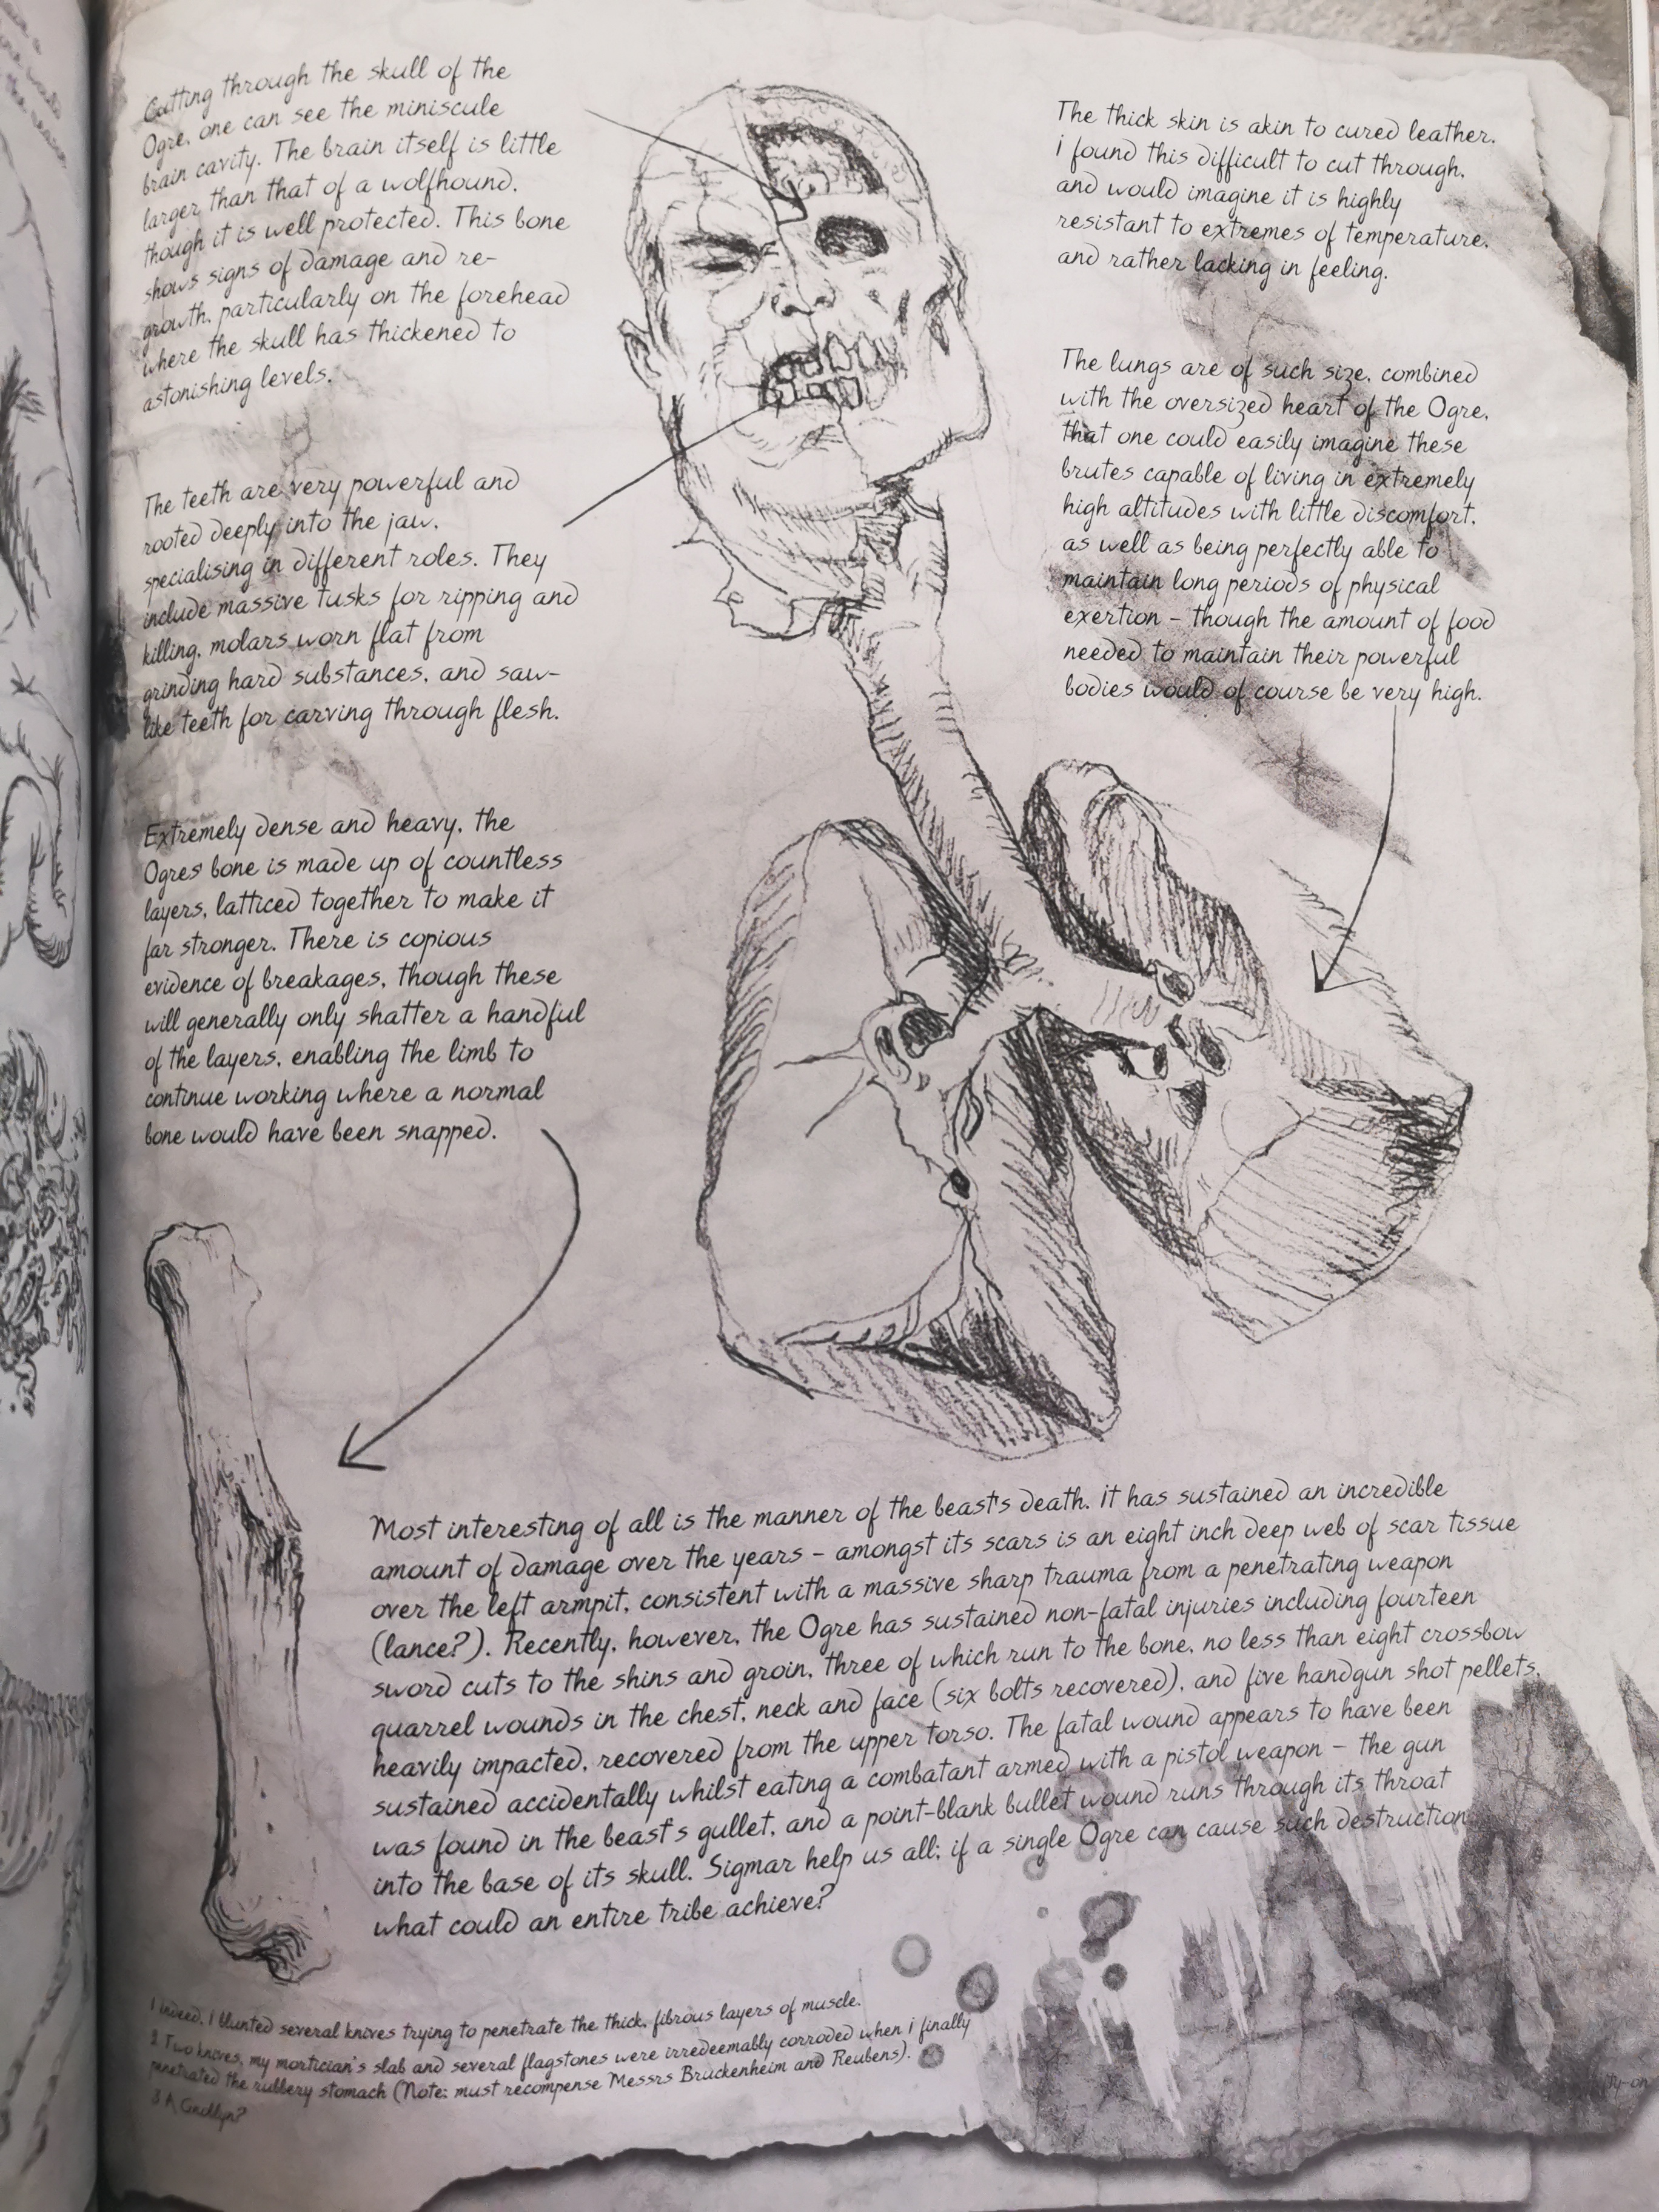 Cutting through the skull of the
Ogre, one can see the miniscule
brain cavity. The brain itself is little
larger than that of a wolfhound,
though it is well protected. This bone
shows signs of damage and re-
growth, particularly on the forehead
where the skull has thickened to
astonishing levels.
The teeth are very powerful and
rooted deeply into the jaw,
specialising in different roles. They
include massive tusks for ripping and
killing, molars worn flat from
grinding hard substances, and saw-
like teeth for carving through flesh.
Extremely dense and heavy, the
Ogres' bone is made up of countless
layers, latticed together to make it
far stronger. There is copious
evidence of breakages, though these
will generally only shatter a handful
of the layers, enabling the limb to
continue working where a normal
bone would have been snapped.
The thick skin is akin to cured leather.
i found this difficult to cut through,
and would imagine it is highly
resistant to extremes of temperature,
and rather lacking in feeling.
The lungs are of such size, combined
with the oversized heart of the Ogre,
that one could easily imagine these
brutes capable of living in extremely
high altitudes with little discomfort,
as well as being perfectly able to
maintain long periods of physical
exertion – though the amount of food
needed to maintain their powerful
bodies would of course be very high.
Most interesting of all is the manner of the beast's death. it has sustained an incredible
amount of damage over the years – amongst its scars is an eight inch deep web of scar tissue
over the left armpit, consistent with a massive sharp trauma from a penetrating weapon
(lance?). Recently, however, the Ogre has sustained non-fatal injuries including fourteen
sword cuts to the shins and groin, three of which run to the bone, no less than eight crossbow
quarrel wounds in the chest, neck and face (six bolts recovered), and five handgun shot pellets,
heavily impacted, recovered from the upper torso. The fatal wound appears to have been
sustained accidentally whilst eating a combatant armed with a pistol weapon – the gun
was found in the beast's gullet, and a point-blank bullet wound runs through its throat
into the base of its skull. Sigmar help us all; if a single Ogre can cause such destruction
what could an entire tribe achieve?
1 indeed, i blunted several knives trying to penetrate the thick, fibrous layers of muscle.
2 Two knives, my mortician's slab and several flagstones were irredeemably corroded when i finally
penetrated the rubbery stomach (Note: must recompense Messrs Bruckenheim and Reubens).
3 A Gnoblyn?